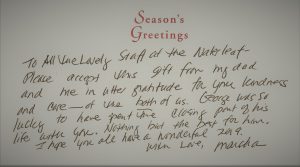 Season's
Greetings
To All the Lovely Staff at the Nutleaf
Please accept this gift from my dad
and me in utter gratitude for your kindness
and care — of the both of us. George was so
lucky to have spent the closing part of his
life with you. Nothing but the best for him.
I hope you all have a wonderful 2019.
With Love,